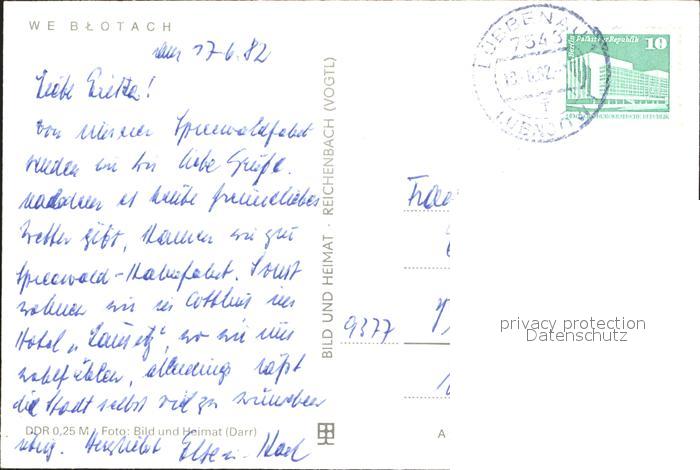 WE BŁOTACH
am 17.6.82
Liebe Erika!
von unserer Spreewaldfahrt
senden wir dir liebe Grüße.
nachdem es heute freundliches
Wetter gibt, kamen wir zur
Spreewald-Kahnfahrt. Sonst
wohnen wir in Cottbus im
Hotel „Lausitz", wo wir uns
wohlfühlen, allerdings läßt
die Stadt selbst viel zu wünschen
übrig. Herzlichst
DDR 0,25 M Foto: Bild und Heimat (Darr)
BILD UND HEIMAT · REICHENBACH (VOGTL)
LÜBBENAU
7543
Berlin, Palast der Republik
10
DEUTSCHE DEMOKRATISCHE REPUBLIK
9377
privacy protection
Datenschutz
A